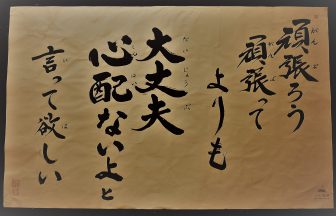 頑張ろう
頑張って
よりも
大丈夫
心配ないよと
言って欲しい